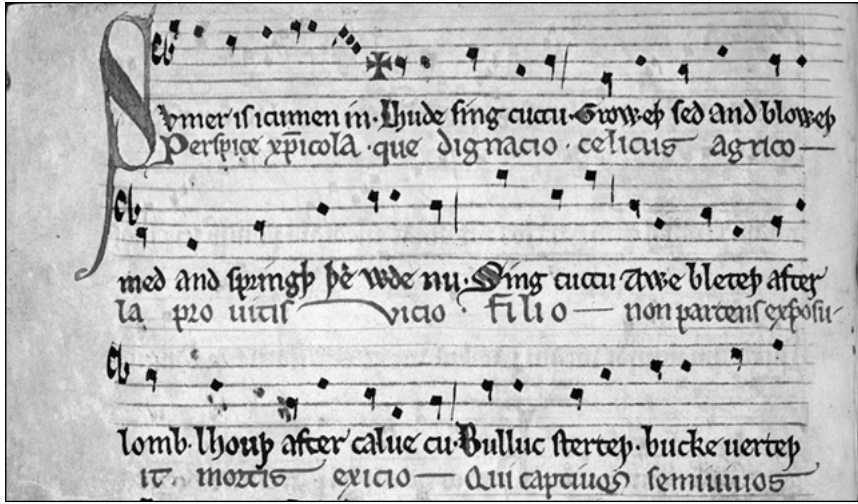 Svmer is icumen in · Lhude sing cuccu · Groweþ sed and bloweþ
Perspice xp̄icola · que dignacio · celicus agrico
med and springþ þe wde nu · Sing cuccu Awe bleteþ after
la pro uitis vicio · filio non parcens exposu-
lomb · lhouþ after calue cu · Bulluc sterteþ · bucke uerteþ
it mortis exicio Qui captiuos semiuiuos